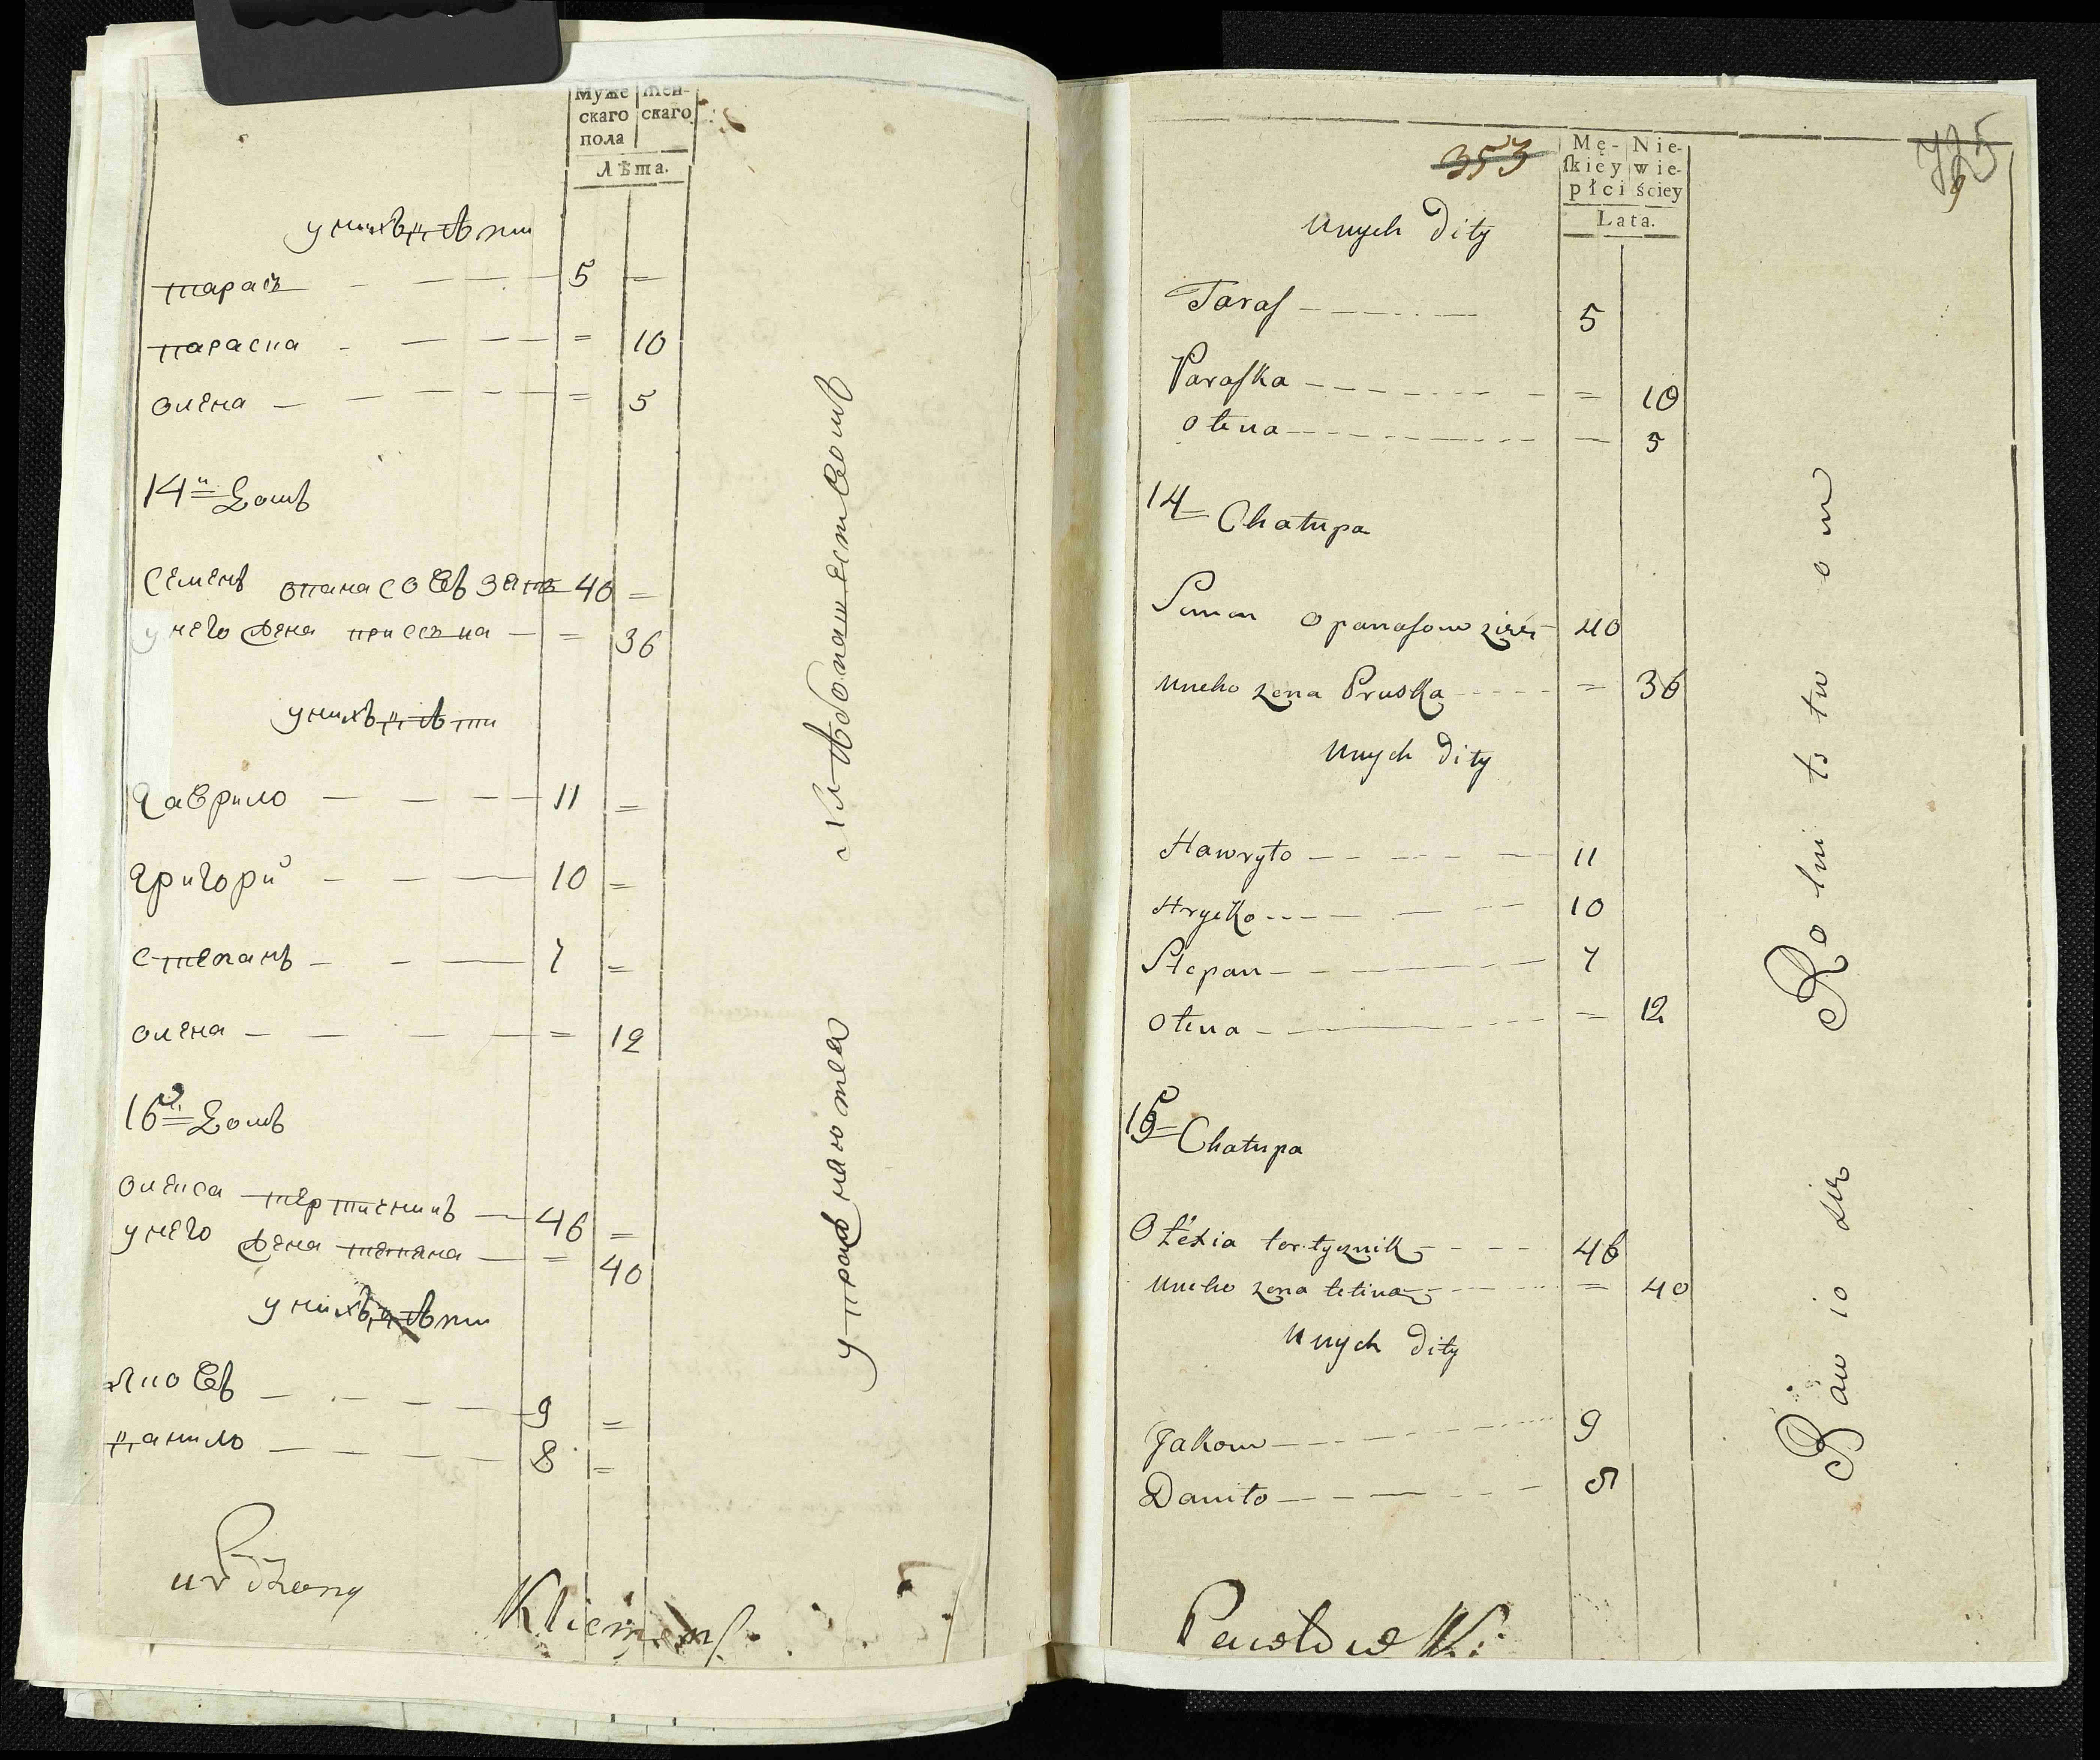 Муже
скаго
пола
жен-
скаго
Лѣта.
у нихъ дѣти
тарасъ — — — 5 —
параска — — — = 10
олена — — — = 5
14й домъ
Семенъ опанасовъ зять 40 =
у него жена приська — = 36
у нихъ дѣти
гаврило — — — 11 =
григорий — — — 10 =
степанъ — — — 7 =
олена — — — = 12
16й домъ
олекса тертишникъ — 46 =
у него жена тетяна — = 40
у нихъ дѣти
яковъ — — — 9 =
данило — — — 8 =
упражняютея хлѣбопашествомъ
Kliemens
353
Mę-
skiey
płci
Nie-
wie-
ściey
Lata.
Unych Dity
Taras — — — 5
Paraska — — — = 10
Olena — — — — 5
14 Chałupa
Semen Opanasow zięć 40
Uneho zena Pruska — = 36
Unych Dity
Hawryło — — — 11
Hrycko — — — 10
Stepan — — — 7
Olena — — — = 12
15 Chałupa
Ołexia tertycznik — — 46
Uneho zena tetina — = 40
Unych Dity
Jakow — — — 9
Daniło — — — 8
Bawio sie Rolnictwom
Pawłowski